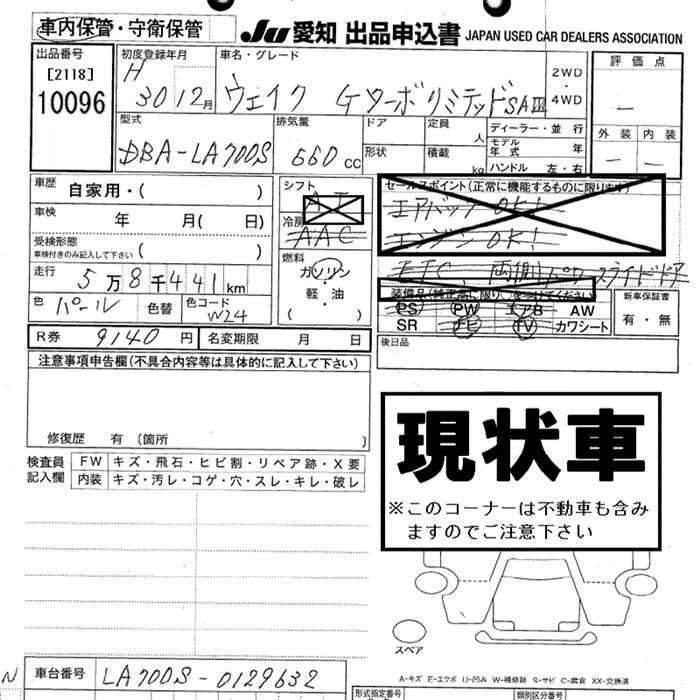 車内保管・守衛保管
JU 愛知 出品申込書 JAPAN USED CAR DEALERS ASSOCIATION
出品番号
[2118]
10096
初度登録年月
H
30 12月
車名・グレード
ウェイク Gターボリミテッド SAIII
2WD
・
4WD
評価点
—
外装 内装
— —
型式
DBA-LA700S
排気量
660 CC
ドア
形状
定員 人
積載 kg
ディーラー・並行
モデル年式 年
ハンドル 左・右
車歴 自家用・( )
車検 年 月( 日)
受検形態
車検付きのみ記入して下さい ( )
走行 5万8千441km
色 パール 色替 色コード W24
シフト
AT
冷房
AAC
燃料
ガソリン
・
軽・油
( )
セールスポイント(正常に機能するものに限ります)
エアバック OK!
エンジン OK!
ETC、両側パワースライドドア
装備品(純正常に限り○をつけてください)
PS PW エアB AW
SR ナビ TV カワシート
新車保証書
有・無
R券 9140 円 名変期限 月 日
後日品
注意事項申告欄(不具合内容等は具体的に記入して下さい)
修復歴 有 〔箇所 〕
検査員
記入欄
FW キズ・飛石・ヒビ割・リペア跡・X要
内装 キズ・汚レ・コゲ・穴・スレ・キレ・破レ
現状車
※このコーナーは不動車も含み
ますのでご注意下さい
スペア
A-キズ E-エクボ U-凹み W-補修跡 S-サビ C-腐食 XX-交換済
N
車台番号 LA700S-0129632
形式指定番号
類別区分番号